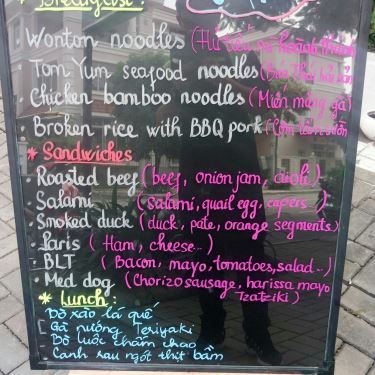 Breakfast:
Wonton noodles (Hủ tiếu mì hoành thánh
Tom Yum seafood noodles (Bún Thái hải sản
Chicken bamboo noodles (Miến măng gà)
Broken rice with BBQ pork (Cơm tấm sườn
* Sandwiches
· Roasted beef (beef, onion jam, aioli)
· Salami (salami, quail egg, capers...)
· Smoked duck (duck, pate, orange segments)
· Paris (Ham, cheese...)
· BLT (Bacon, mayo, tomatoes, salad...)
· Med dog (Chorizo sausage, harissa mayo
Tzatziki)
* Lunch:
- Bò xào lá quế
- Gà nướng Teriyaki
- Bò luộc chấm chao
- Canh rau ngót thịt bằm